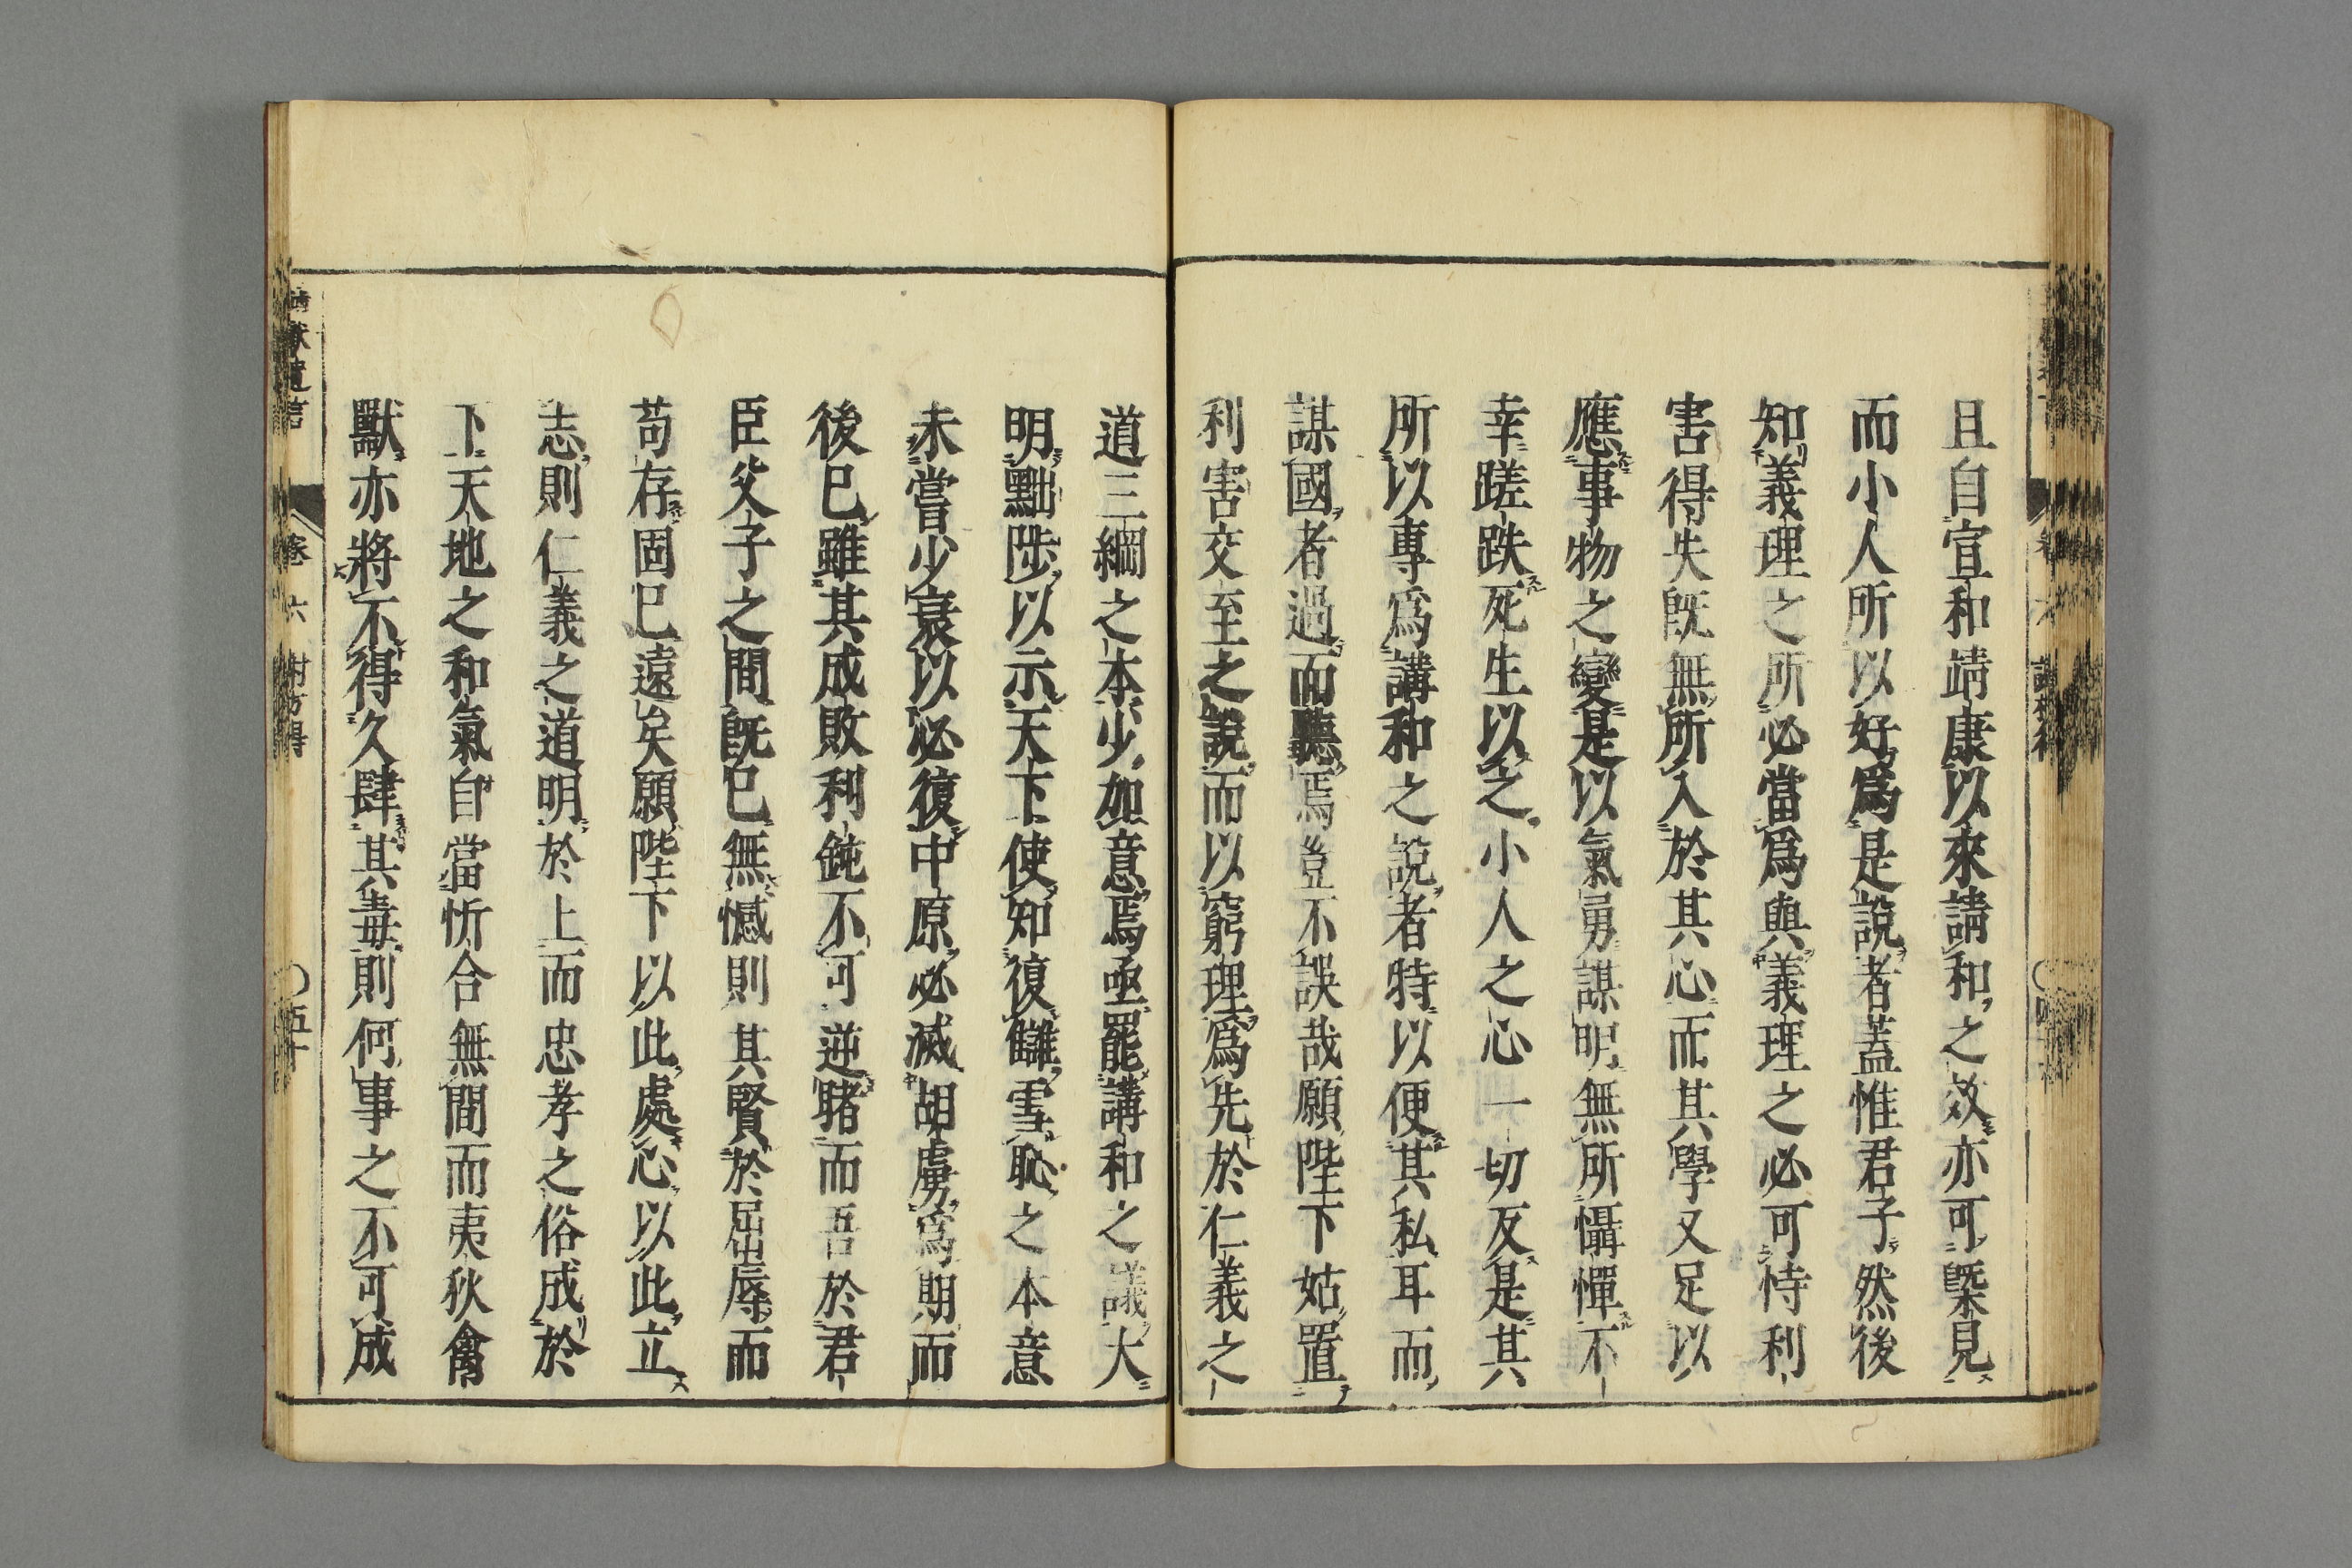 且自宣和靖康以來講和之效亦可槩見
而小人所以好爲是說者蓋惟君子然後
知義理之所必當爲與義理之必可恃利
害得失旣無所入於其心而其學又足以
應事物之變是以氣勇謀明無所懾憚不
幸蹉跌死生以之小人之心一切反是其
所以專爲講和之說者特以便其私耳而
謀國者過而聽焉豈不誤哉願陛下姑置
利害交至之說而以窮理爲先於仁義之
道三綱之本少加意焉亟罷講和之議大
明黜陟以示天下使知復讎雪恥之本意
未嘗少衰以必復中原必滅胡虜爲期而
後已雖其成敗利鈍不可逆睹而吾於君
臣父子之間旣已無憾則其賢於屈辱而
苟存固已遠矣願陛下以此處心以此立
志則仁義之道明於上而忠孝之俗成於
下天地之和氣自當忻合無間而夷狄禽
獸亦將不得久肆其毒則何事之不可成
獻遺言 卷六 謝枋得 五十